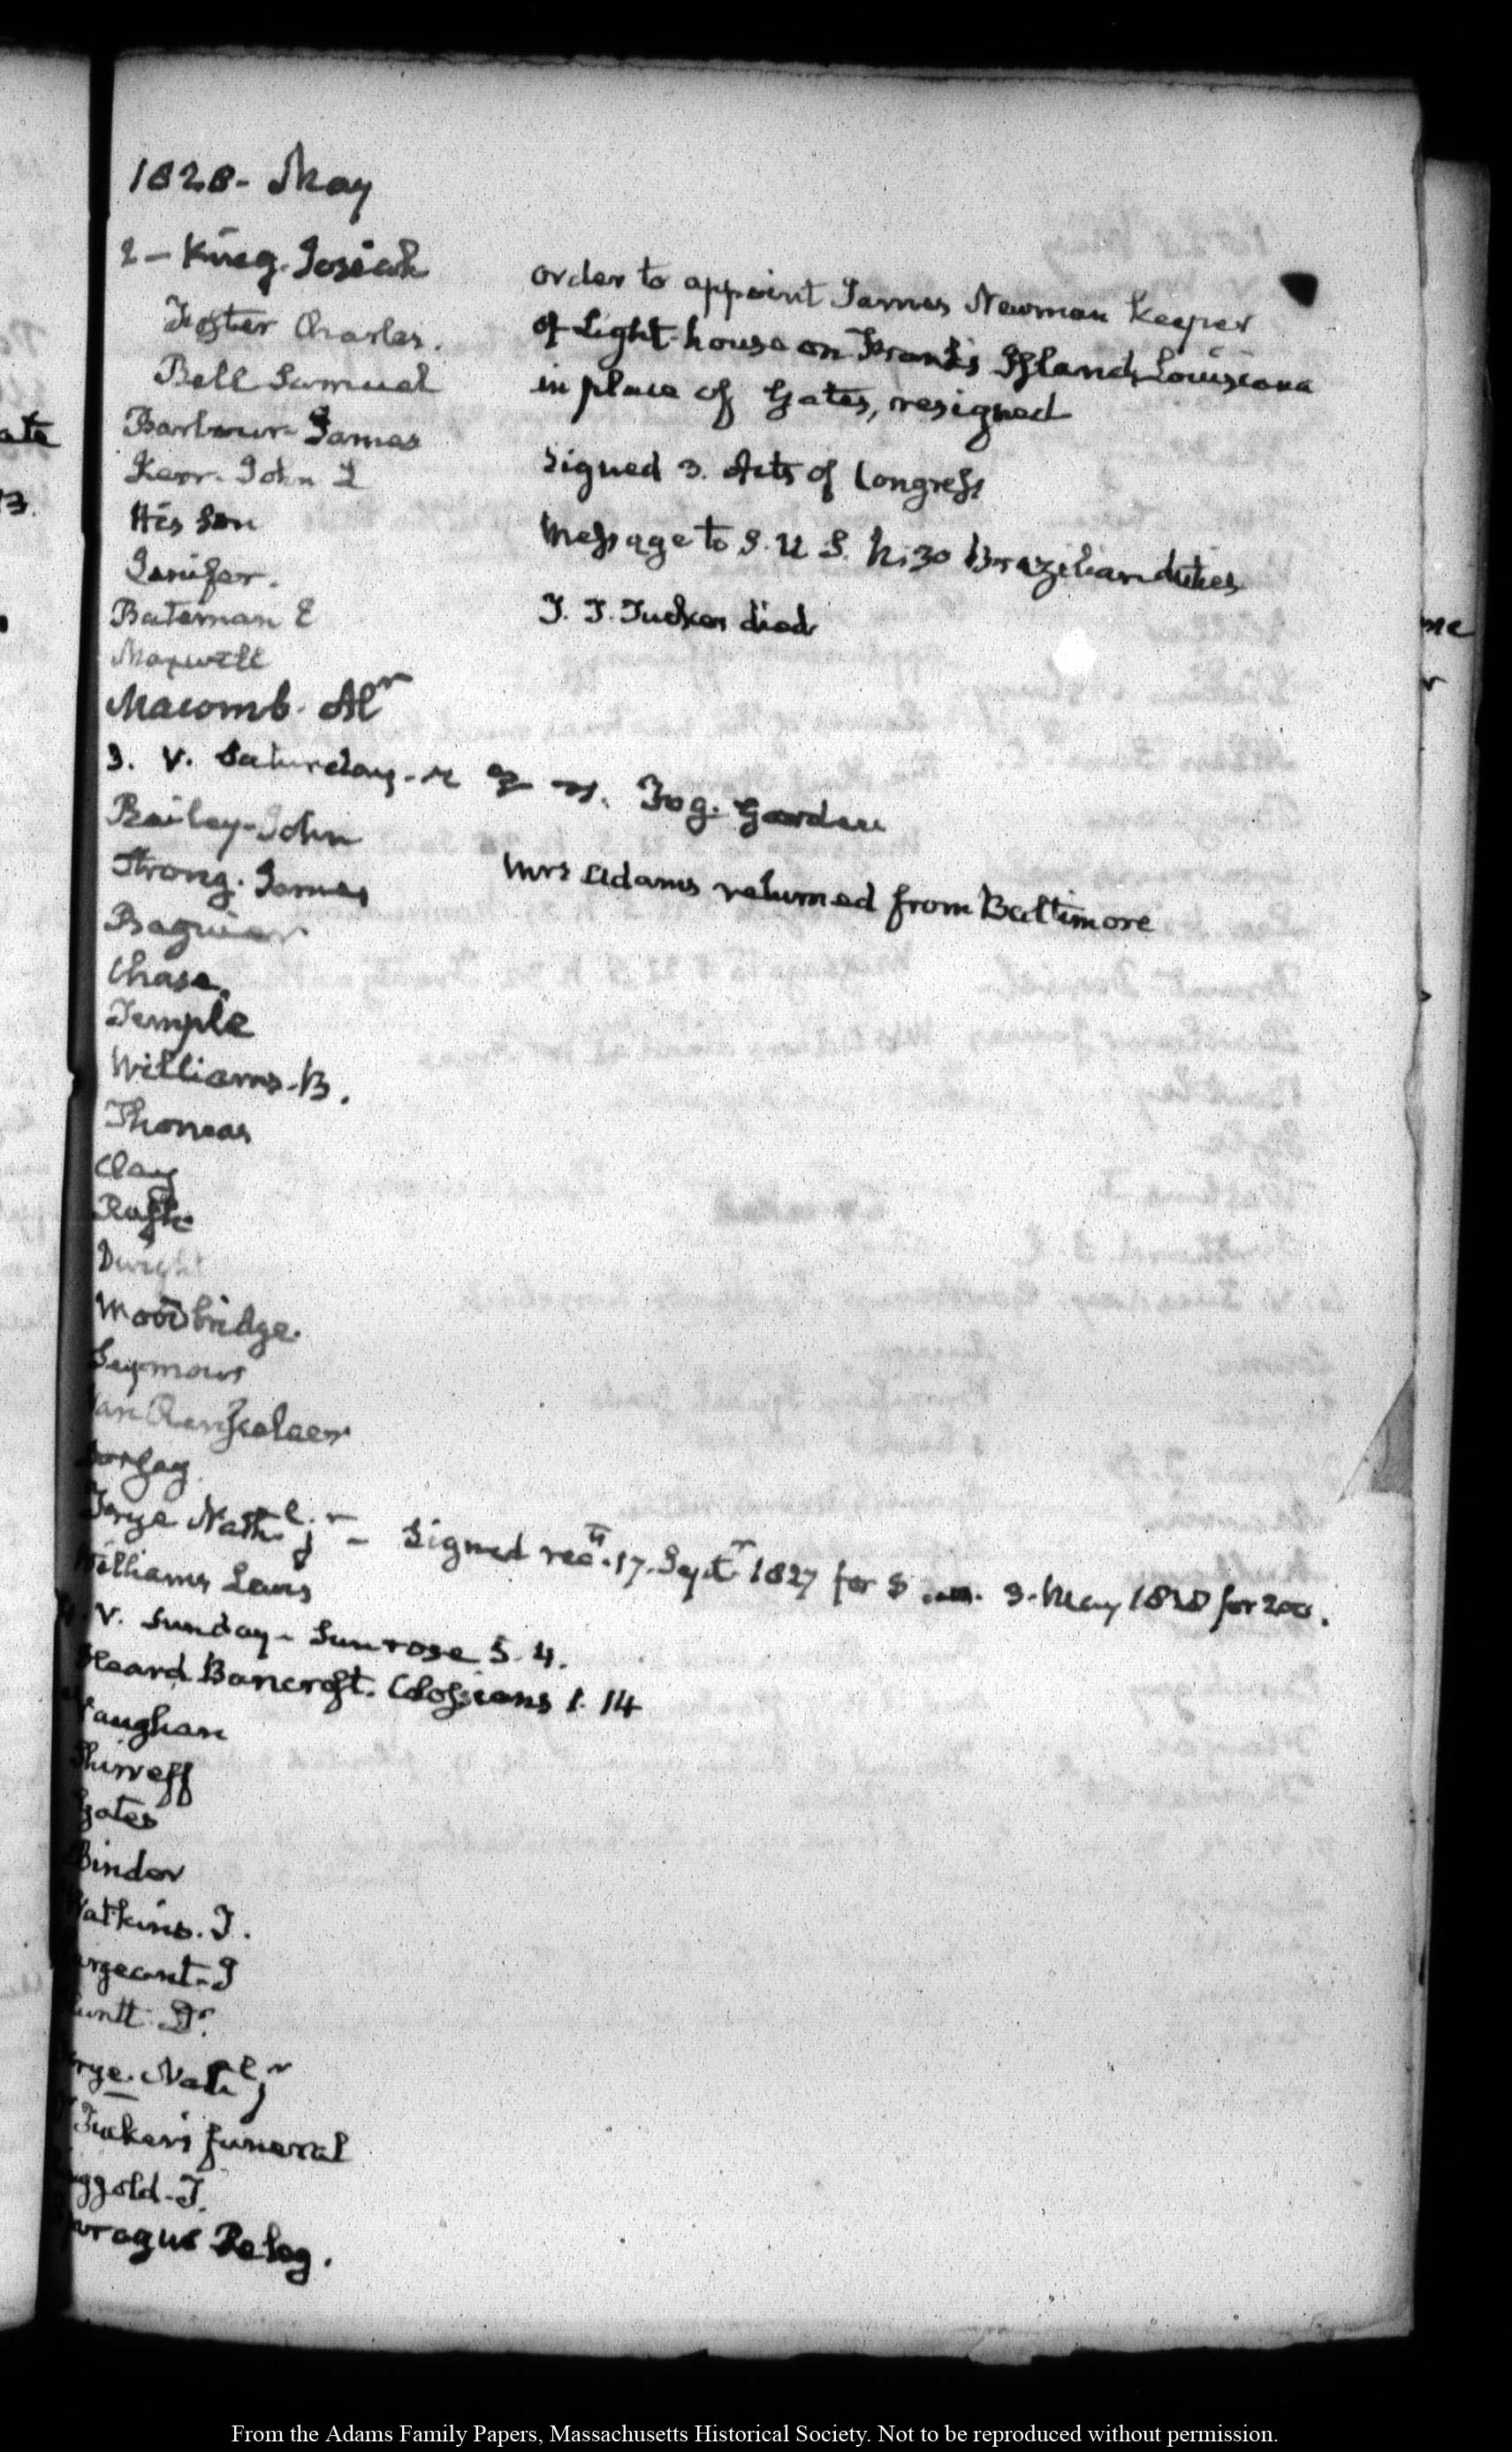 1828- May
2 - King. Josiah
Foster Charles.
Bell Samuel
Barbour James
Kerr. John L
His Son
Jenifer.
Bateman E
Maxwell
Macomb. Alr
order to appoint James Newman Keeper
of Light-house on Frank's Island, Louisiana
in place of Gates, resigned
Signed 3. Acts of Congress
Message to S. U S. N. 30 Brazilian duties
T. T. Tucker died
3. V. Saturday. Fog. Garden
Bailey-John
Strong. James
Mrs Adams returned from Baltimore
Baguier
Chase.
Temple
Williams-B.
Thomas
Clay
Rush
Dwight
Woodbridge.
Seymour
Van Rensselaer
Dorsey
Frye Nathl. jr - Signed recd. 17. Septr 1827 for $ 3. May 1828 for 200.
Williams Lewis
V. Sunday- Sun rose 5. 4.
Heard Bancroft. Colossians 1. 14
Vaughan
Shirreff
Yates
Binder
Watkins. T.
Sergeant-J
Huntt. Dr.
Frye. Nathl jr
Tucker's funeral
Ringgold-T.
Sprague Peleg.
ate
3.
me
r
From the Adams Family Papers, Massachusetts Historical Society. Not to be reproduced without permission.